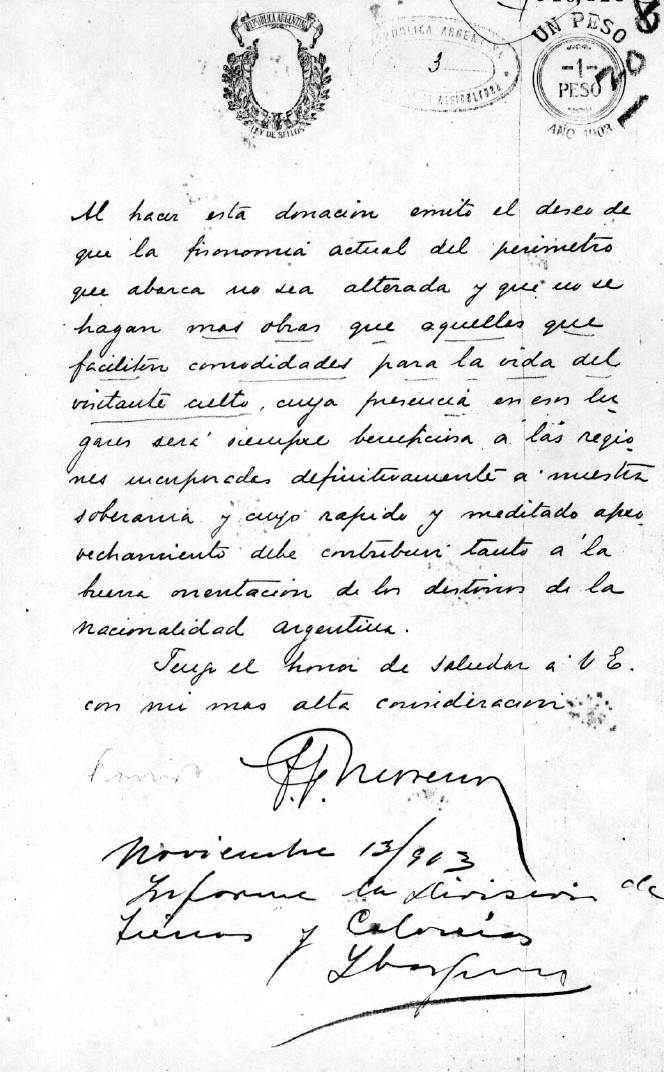 REPÚBLICA ARGENTINA
LEY DE SELLOS
REPÚBLICA ARGENTINA
3
AGRICULTURA
UN PESO
-1-
PESO
AÑO 1903
Al hacer esta donacion emito el deseo de
que la fisonomia actual del perimetro
que abarca no sea alterada y que no se
hagan mas obras que aquellas que
faciliten comodidades para la vida del
visitante culto, cuya presencia en esos lu-
gares será siempre beneficiosa a las regio-
nes incorporadas definitivamente a nuestra
soberania y cuyo rapido y meditado apro-
vechamiento debe contribuir tanto a la
buena orientacion de los destinos de la
nacionalidad argentina.
Tengo el honor de saludar a V E.
con mi mas alta consideracion
F. P. Moreno
Noviembre 13/903
Informe la Division de
Tierras y Colonias